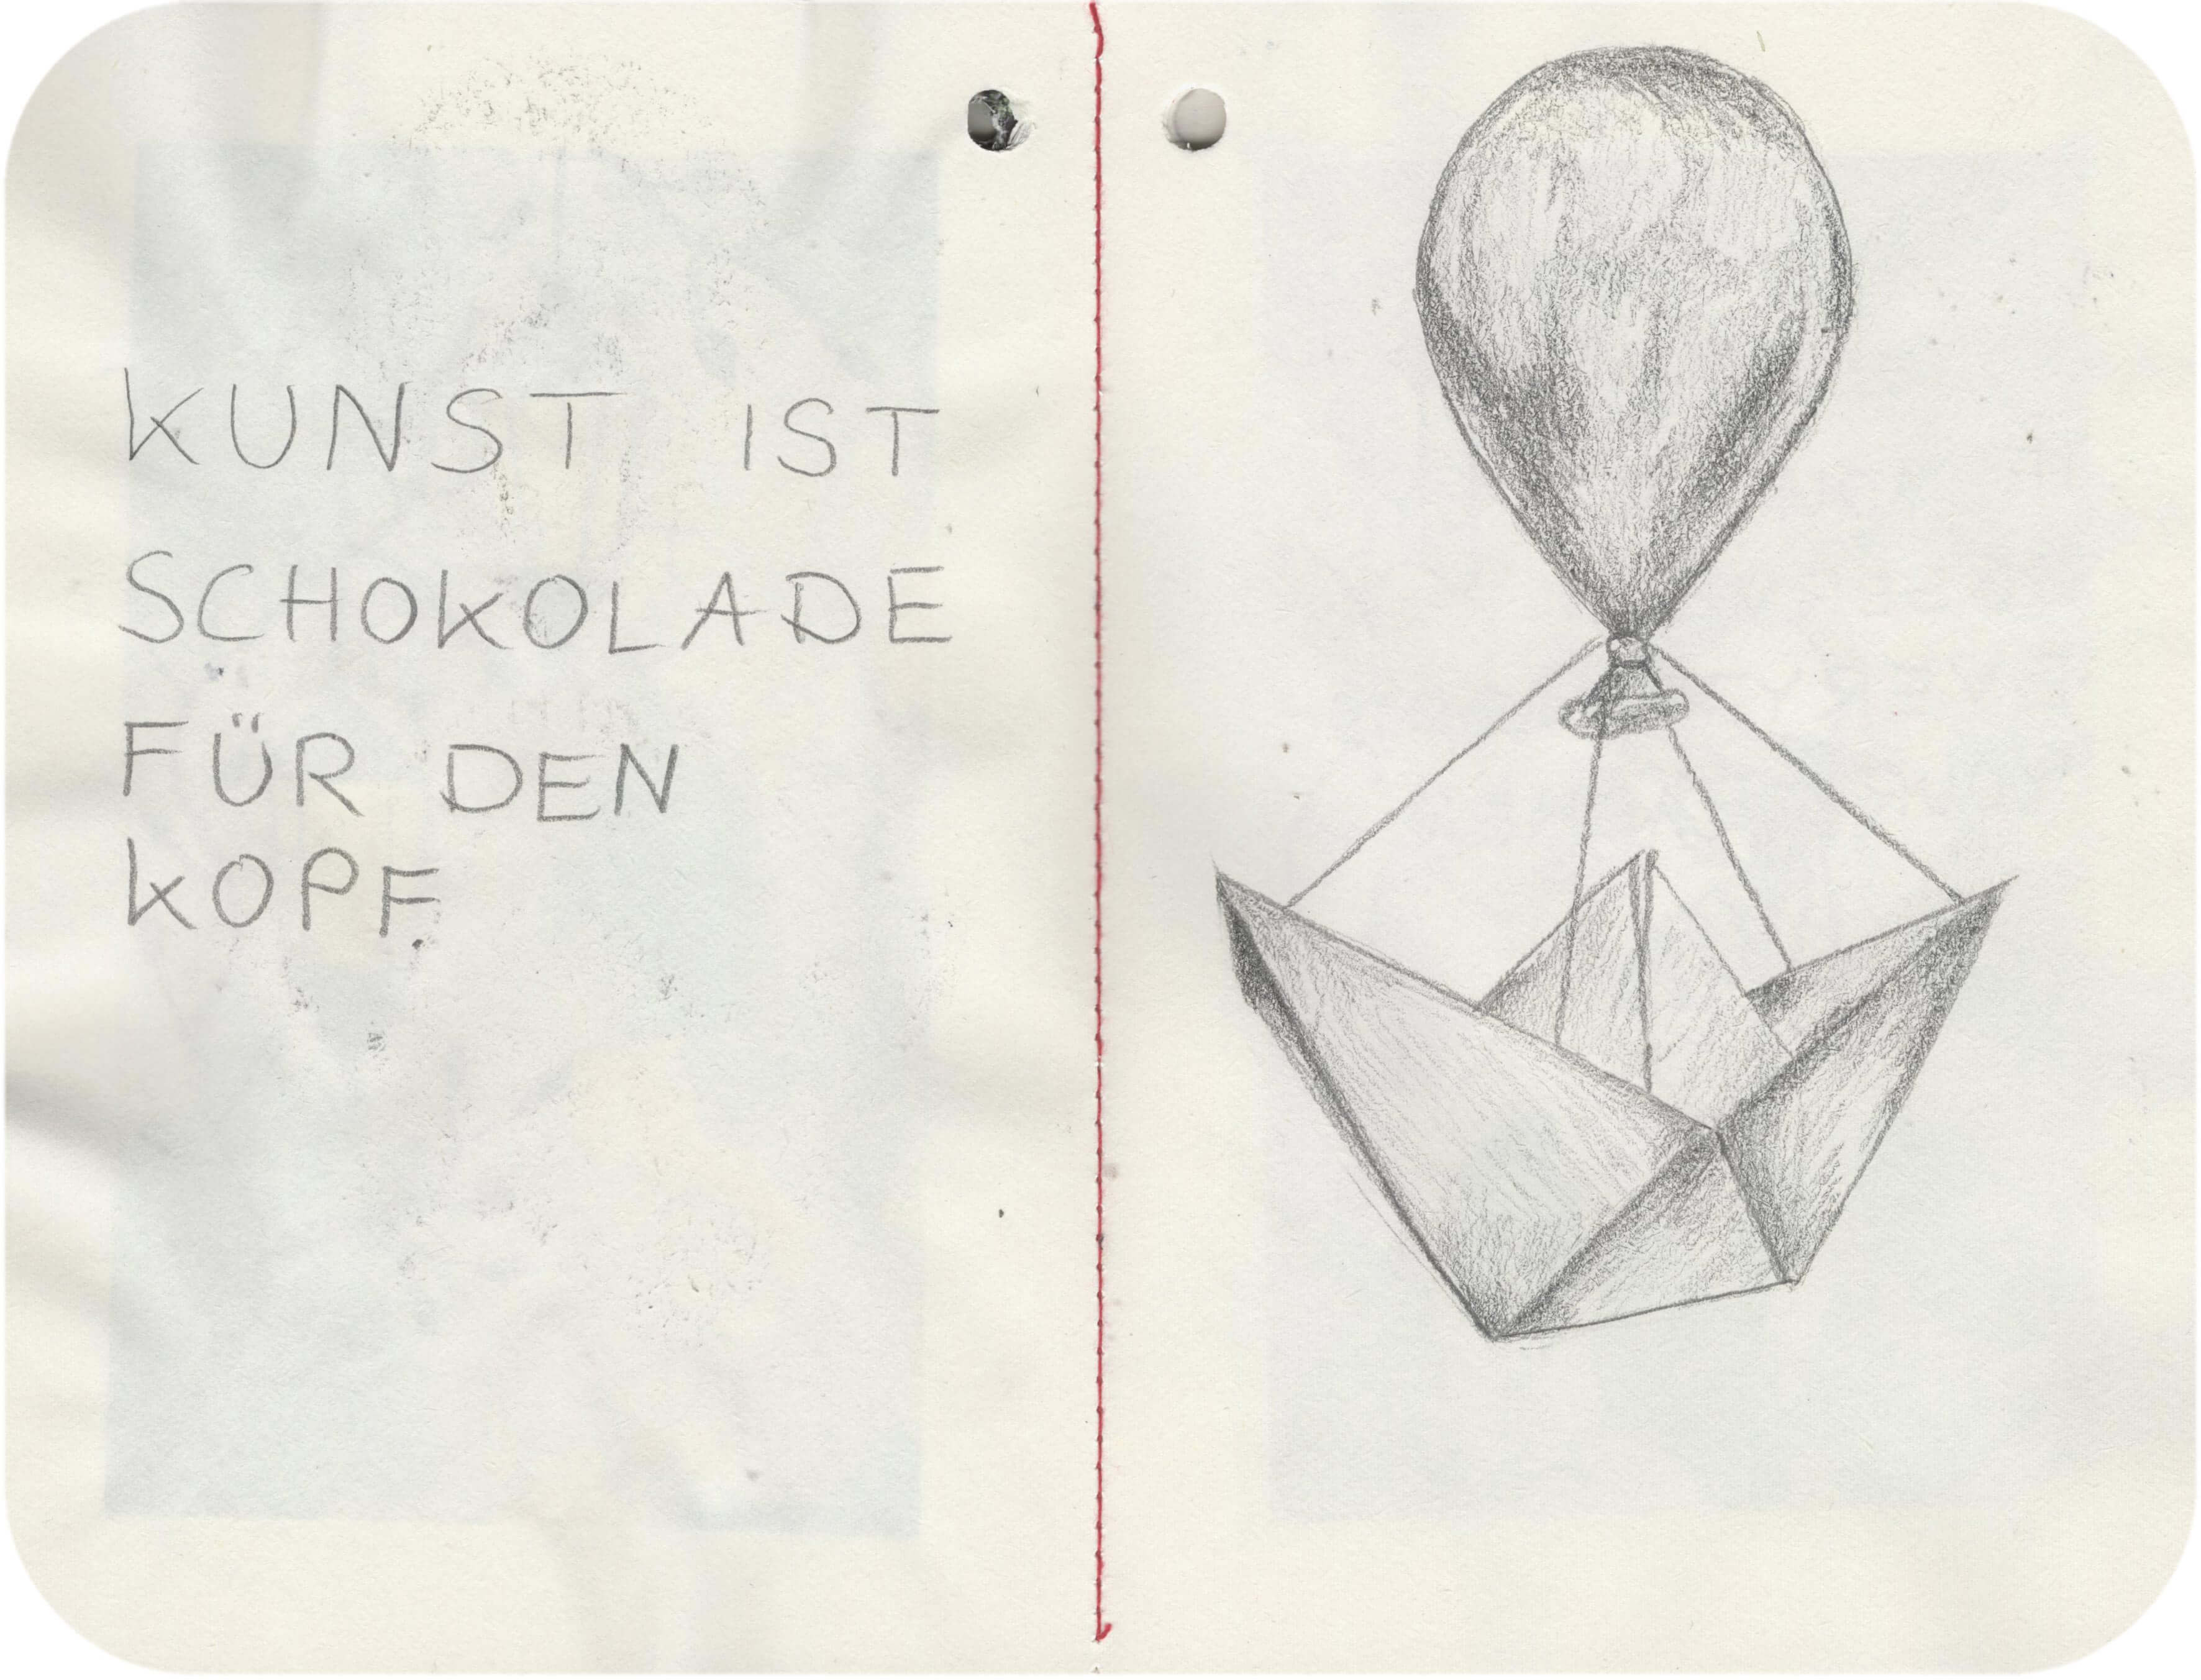 KUNST IST
SCHOKOLADE
FÜR DEN
KOPF.